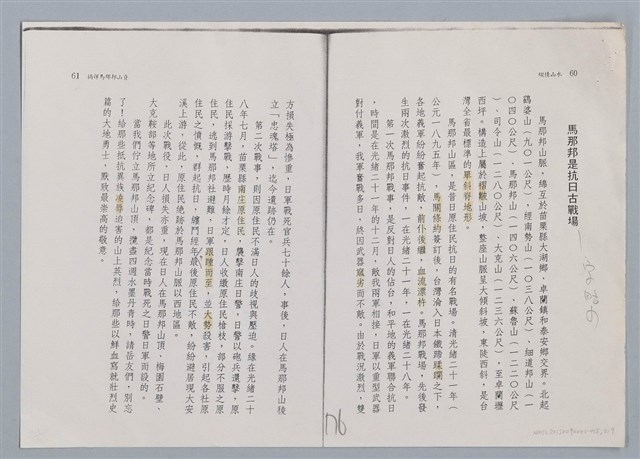 60
馬那邦是抗日古戰場
馬那邦山脈，總互於苗栗縣大湖鄉、卓蘭鎮和泰安鄉交界。北起
鷂婆山（九０一公尺），經南勢山（一０三八公尺）、細道邦山（一
０四０公尺）、馬那邦山（一四０六公尺）、蘇魯山（一二二０公尺
）、司令山（一二八０公尺）、大克山（一二三六公尺），至卓蘭壢
西坪。構造上屬於褶皺山坡，整座山脈呈大領斜坡，東陡西斜，是台
灣全省最標準的單斜脊地形。
馬那邦山區，是昔日原住民抗日的有名戰場。清光緒二十一年（
公元一八九五年），馬關條約簽訂後，台灣淪入日本鐵蹄蹂躪之下，
各地義軍紛紛奮起抗敵，前仆後繼，血流漂杵。馬那邦戰場，先後發
生兩次激烈的抗日事件，一在光緒二十一年，一在光緒二十八年。
第一次馬那邦戰事，是反對日人的佔台，和平地的義軍聯合抗日
，時間是在光緒二十一年的十二月，敵我兩軍相接，日軍以重型武器
對付義軍，我軍奮戰多日，終因武器窳劣而不敵。由於戰況激烈，雙
61
方損失極為慘重，日軍戰死官兵七十餘人，事後，日人在馬那邦山後
立「忠魂塔」，迄今遺跡仍在。
第二次戰事，則因原住民不滿日人的歧視與壓迫。緣在光緒二十
八年七月，苗栗縣南庄原住民，襲擊南庄日警，日警以砲兵還擊，原
住民採游擊戰，歷時月餘才定，日人收繳原住民槍枝，部分不服之原
住民，逃到馬那邦社避難，日軍跟踵而至，並大勢殺害，引起各社原
住民之憤慨，群起抗日，纏鬥經年最後原住民不敵，紛紛避居現大安
溪上游，從此，原住民絕跡於馬那邦山脈以西地區。
此次戰役，日人損失亦重，現在日人在馬那邦山頂、梅園石壁、
大克鞍部等地所立紀念碑，都是紀念當時戰死之日警日軍而設的。
當我們佇立馬那邦山頂，攬盡四週水墨丹青時，請岳友們，別忘
了！給那些抵抗異族凌辱迫害的山上英烈，給那些以鮮血寫就壯烈史
篇的大地勇士，致致最崇高的敬意。
176